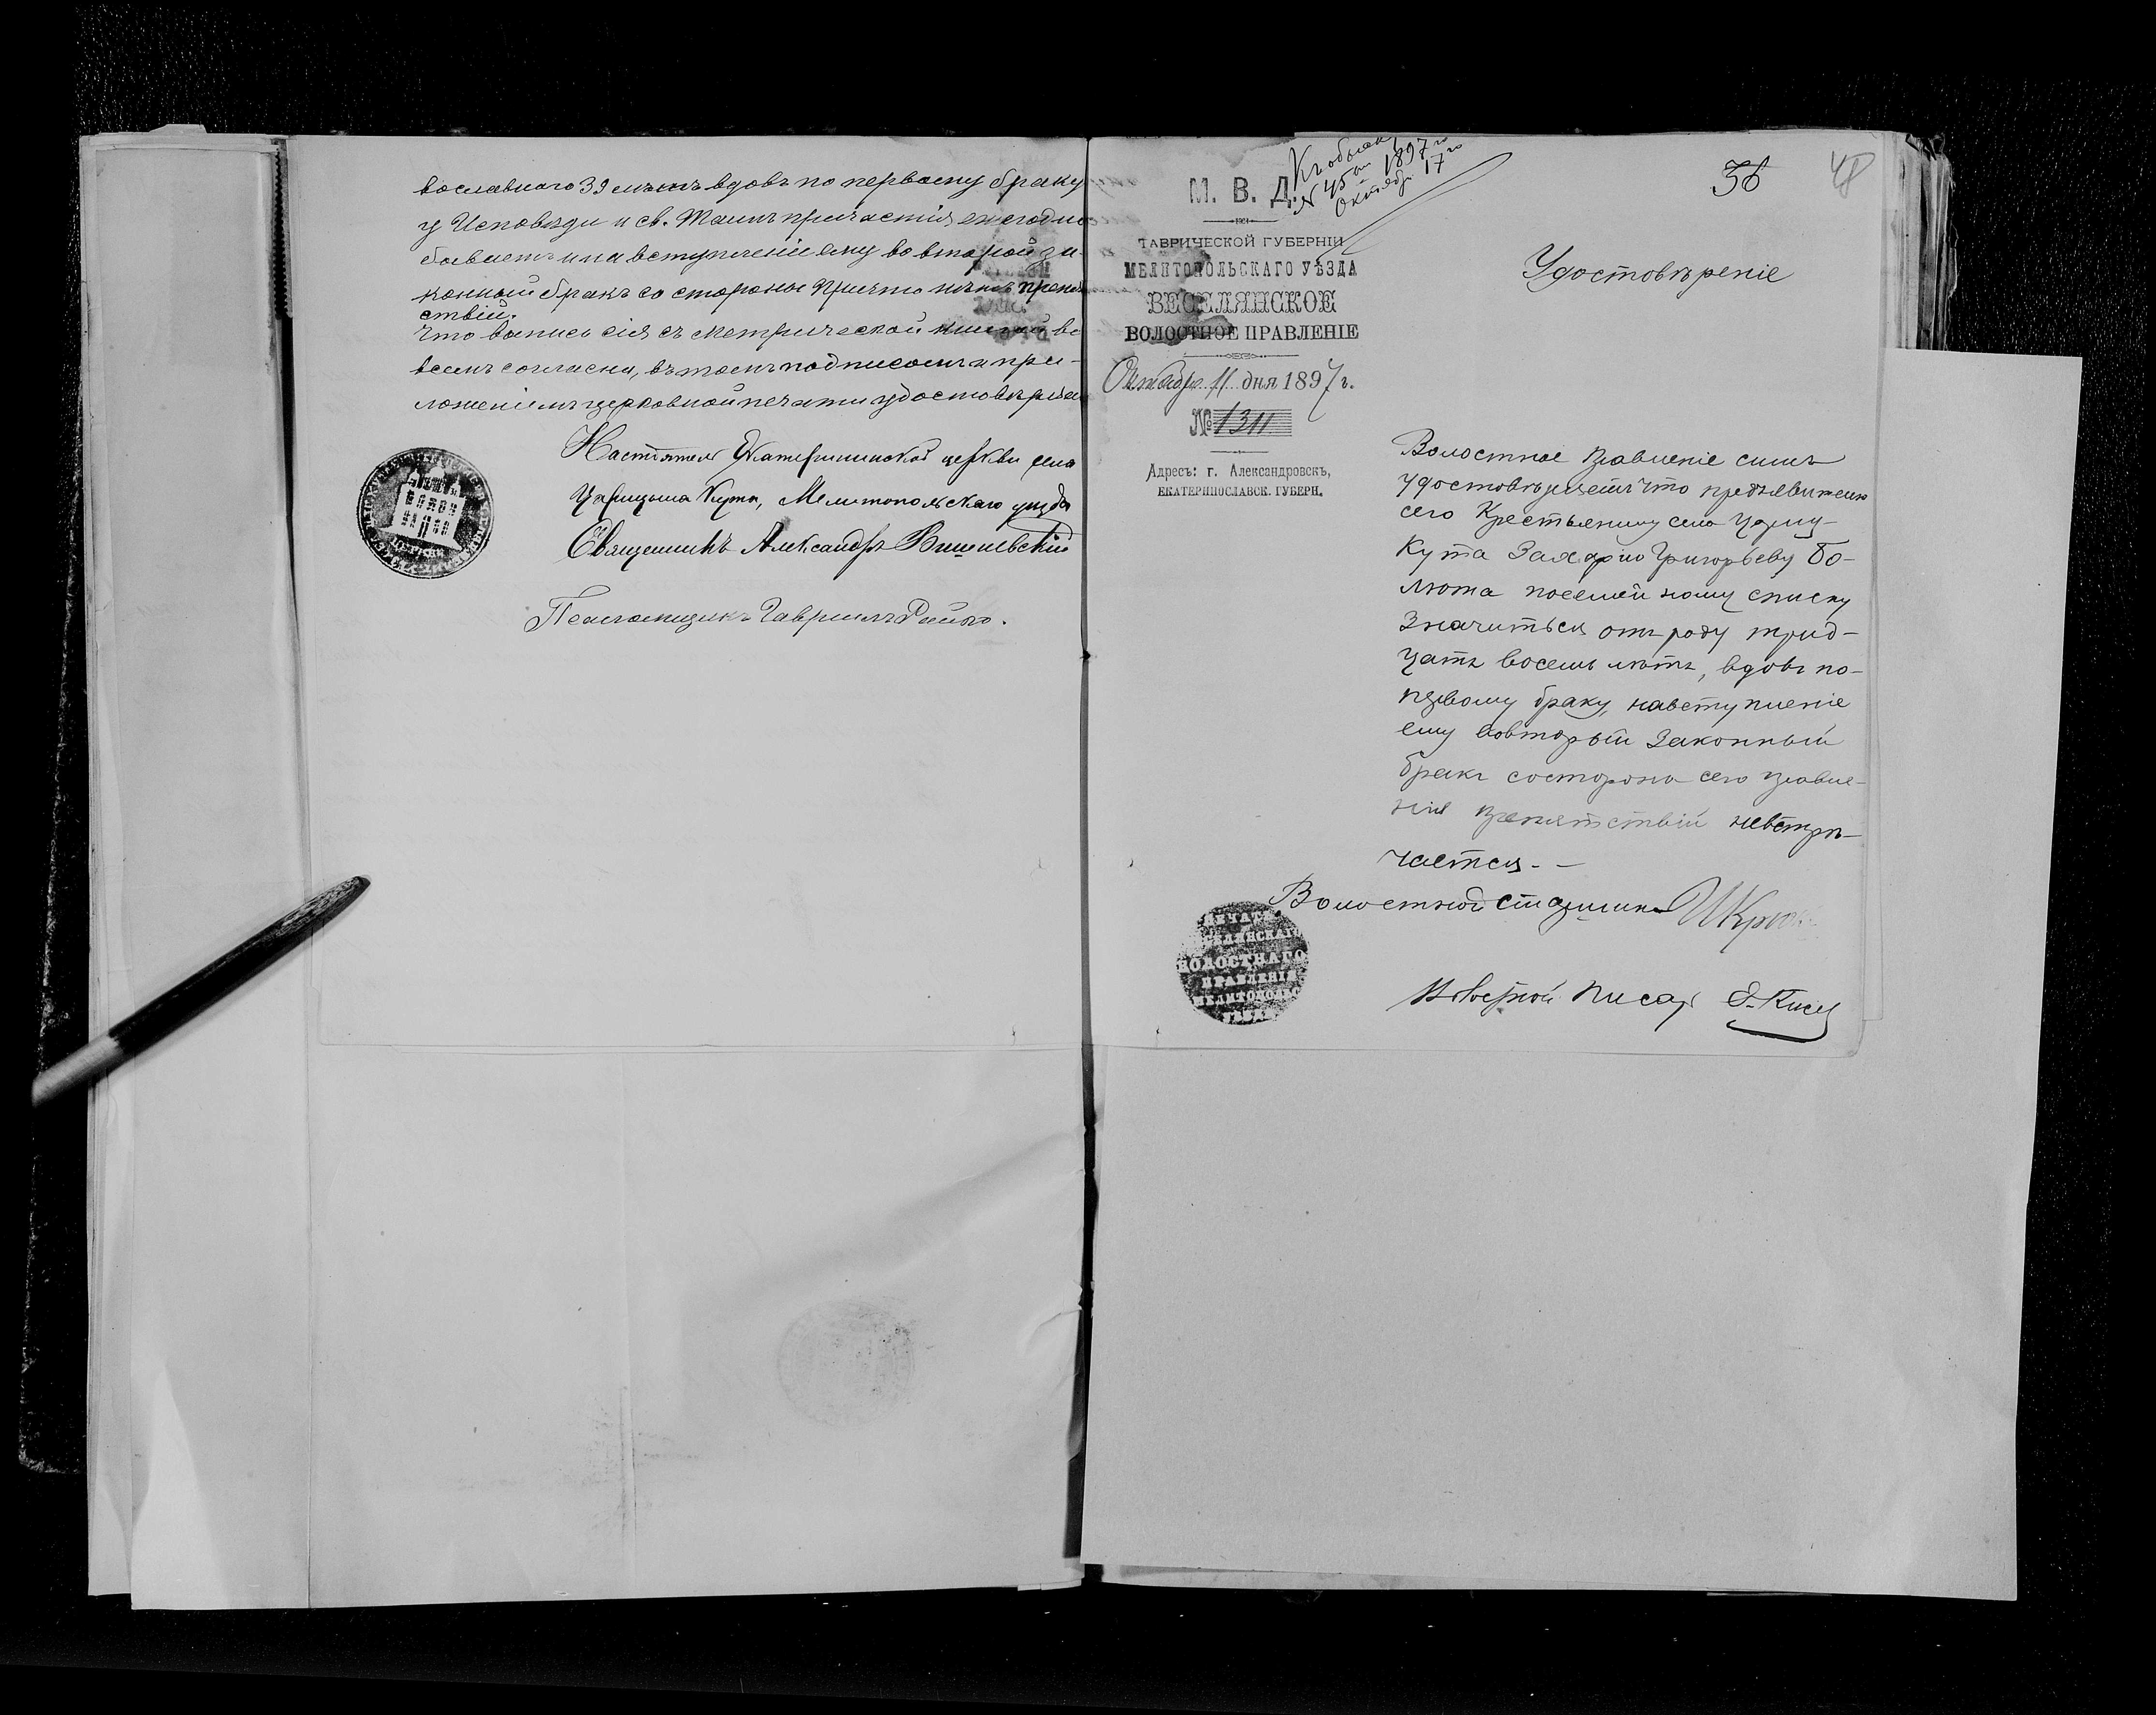 вославнаго 39 лѣтъ вдовъ по первому браку
у Исповѣди и св. Таинъ причастія ежегодно
бываетъ и на вступленіе ему во второй за-
конный бракъ со стороны Причта нѣтъ препят
ствій.
Что запись сія съ метрической книгой во
всемъ согласна, въ томъ подписомъ и при-
ложеніемъ церковной печати удостовѣряемъ
Настоятель Екатерининской церкви села
Царицына Кута, Мелитопольскаго уѣзда
Священникъ Александръ Вишневскій
Псаломщикъ Гавріилъ
ЦЕРКВИ
Къ обыску
№ 45ый 1897 го
Октября 17 го
36
48
М. В. Д.
ТАВРИЧЕСКОЙ ГУБЕРНІИ
МЕЛИТОПОЛЬСКАГО УѢЗДА
ВЕСЕЛЯНСКОЕ
ВОЛОСТНОЕ ПРАВЛЕНІЕ
Октября 11 дня 1897 г.
№ 1311
Адресъ: г. Александровскъ,
ЕКАТЕРИНОСЛАВСК. ГУБЕРН.
Удостовѣреніе
Волостное Правленіе симъ
удостовѣряетъ что предъявителю
сего Крестьянину села Цариц-
Кута Захарію Григорьеву Бо-
люта посемейному списку
значиться отъ роду трид-
цать восемь лѣтъ, вдовъ по-
первому браку, навступленіе
ему вовторый Законный
бракъ состороны сего правле-
нія препятствій невстрѣ-
чается.
Волостной старшина
Волостной Писарь
ПЕЧАТЬ
ВЕСЕЛЯНСКАГО
ВОЛОСТНАГО
ПРАВЛЕНІЯ
МЕЛИТОПОЛЬС
УѢЗДА